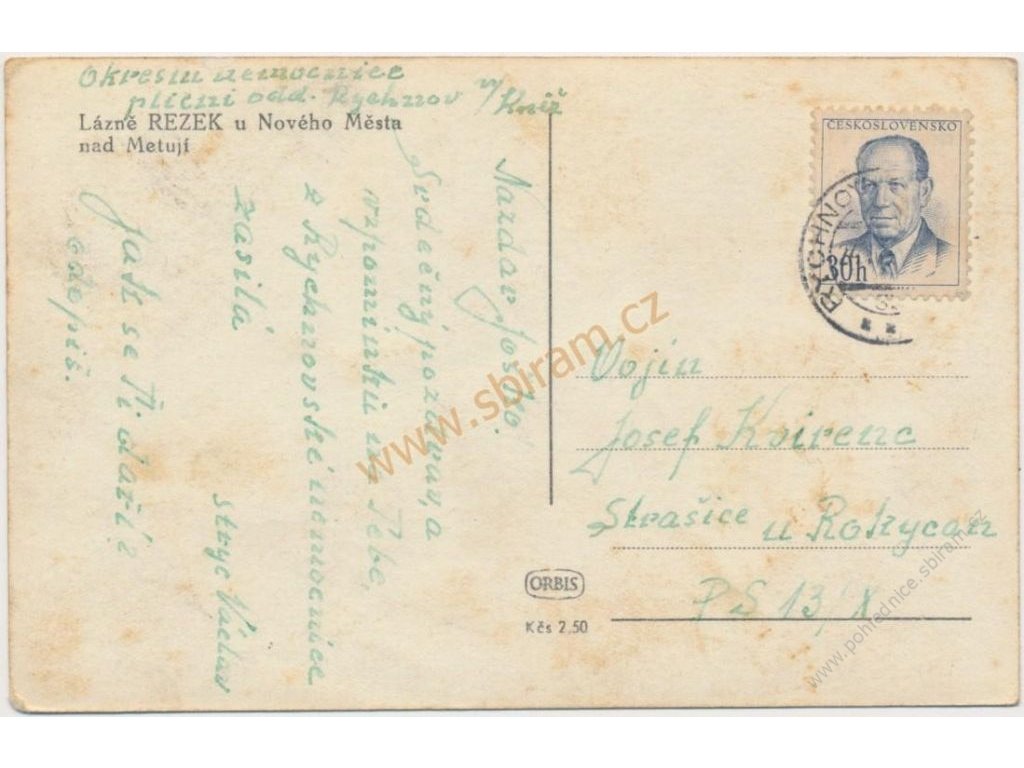 Okresní nemocnice
plicní odd. Rychnov n/Kněž
Lázně REZEK u Nového Města
nad Metují
Nazdar Jožko!
Srdečný pozdrav, a
vzpomínku na Tebe,
z Rychnovské nemocnice
zasílá
strýc Václav
Jak se Ti daří?
odepiš.
ČESKOSLOVENSKO
30h
RYCHNOV
Vojín
Josef Kvirenc
Strašice u Rokycan
PS 13/X
ORBIS
Kčs 2.50
www.sbiram.cz
www.pohlednice.sbiram.cz